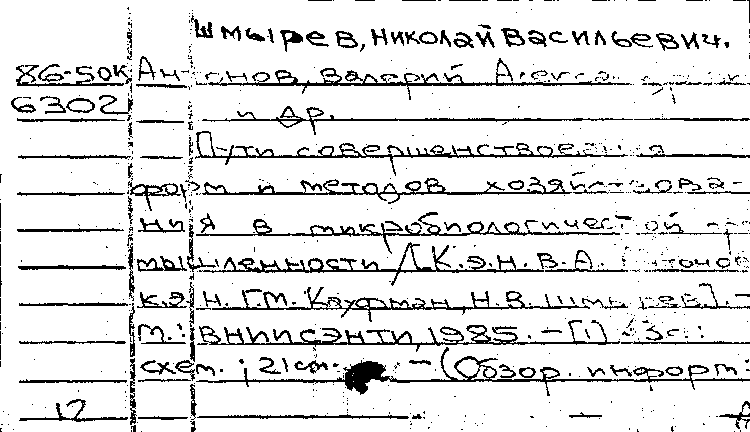 Шмырев, Николай Васильевич.
86-50к Антонов, Валерий
6302 и др.
Пути совершенствования
форм и методов хозяйствова-
ния в микробиологической
мышленности / [К.э.н. В.А. Антонов
к.э.н. Г.М. Кауфман, Н.В. Шмырев]. -
м.: ВНИИСЭНТИ, 1985. - [1] 3с.:
схем. ; 21 см. - (Обзор. информ.
12